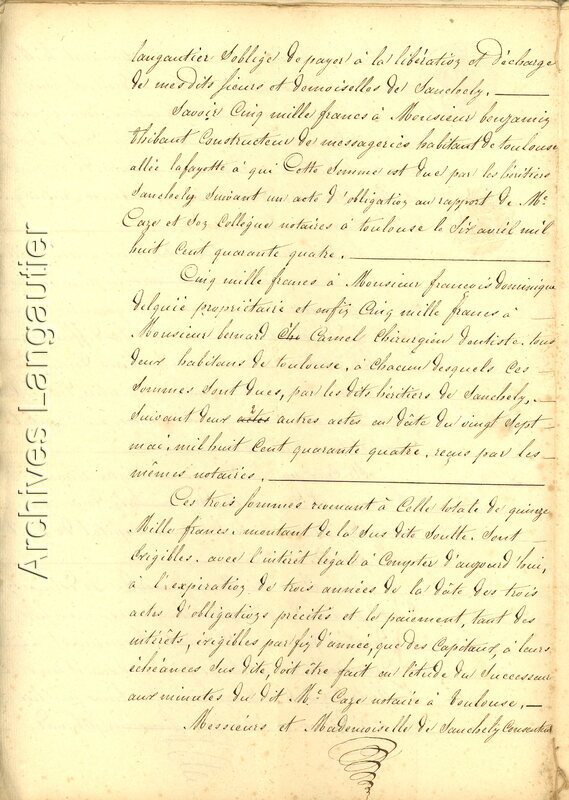 langautier s'oblige de payer à la libération et décharge
de mesdits sieurs et demoiselles de Sanchely.
Savoir Cinq mille francs à Monsieur benjamin
thibaut constructeur de messageries habitant de toulouse
allée lafayette à qui Cette somme est due par les héritiers
Sanchely suivant un acte d'obligation au rapport de Me
Caze et son Collègue notaires à toulouse le six avril mil
huit cent quarante quatre.
Cinq mille francs à Monsieur françois dominique
delguié propriétaire et enfin Cinq mille francs à
Monsieur bernard Carrel chirurgien dentiste, tous
deux habitans de toulouse, à chacun desquels ces
sommes sont dues, par les dits héritiers de Sanchely,
suivant deux actes autres actes en dâte du vingt sept
mai, mil huit Cent quarante quatre, reçus par les
mêmes notaires.
Ces trois sommes revenant à Celle totale de quinze
Mille francs, montant de la sus dite soulte, sont
exigibles, avec l'intérêt légal à Compter d'aujourd'hui,
à l'expiration de trois années de la dâte des trois
actes d'obligations précités et le paiement, tant des
intérêts, exigibles par fin d'année, que des Capitaux, à leurs
échéances sus dite, doit être fait en l'étude du Successeur
aux minutes du dit Me Caze notaire à toulouse.
Messieurs et Mademoiselle de Sanchely Consentent
Archives Langautier